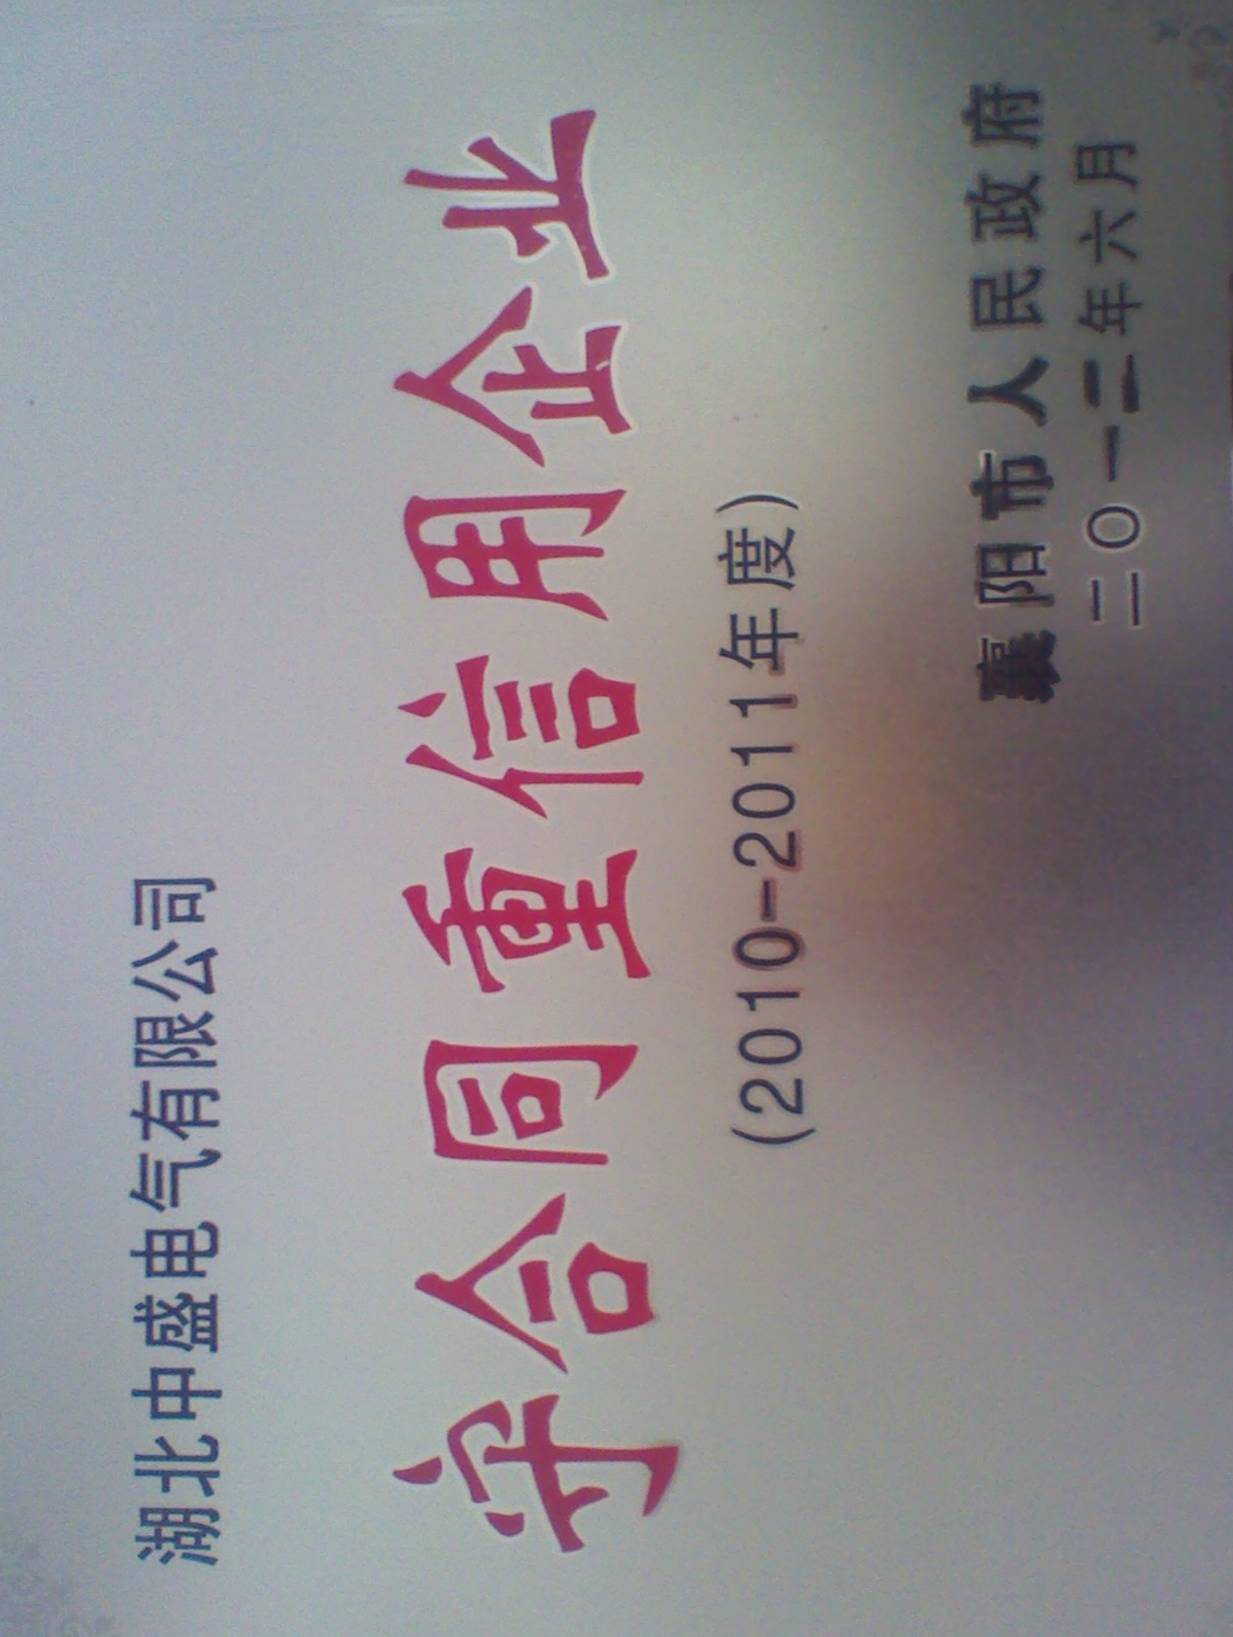 湖北中盛电气有限公司
守合同重信用企业
(2010-2011年度)
襄阳市人民政府
二0一二年六月